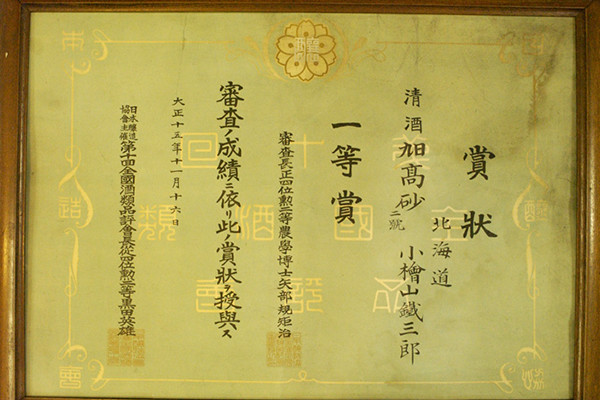 賞狀
北海道
清酒 旭髙砂 二號 小檜山鐵三郎
一等賞
審査長正四位勲三等農學博士矢部規矩治
審査ノ成績ニ依リ此ノ賞狀ヲ授與ス
大正十五年十一月十六日
日本釀造協會主催第十回全國酒類品評會長從四位勲三等黒田英雄